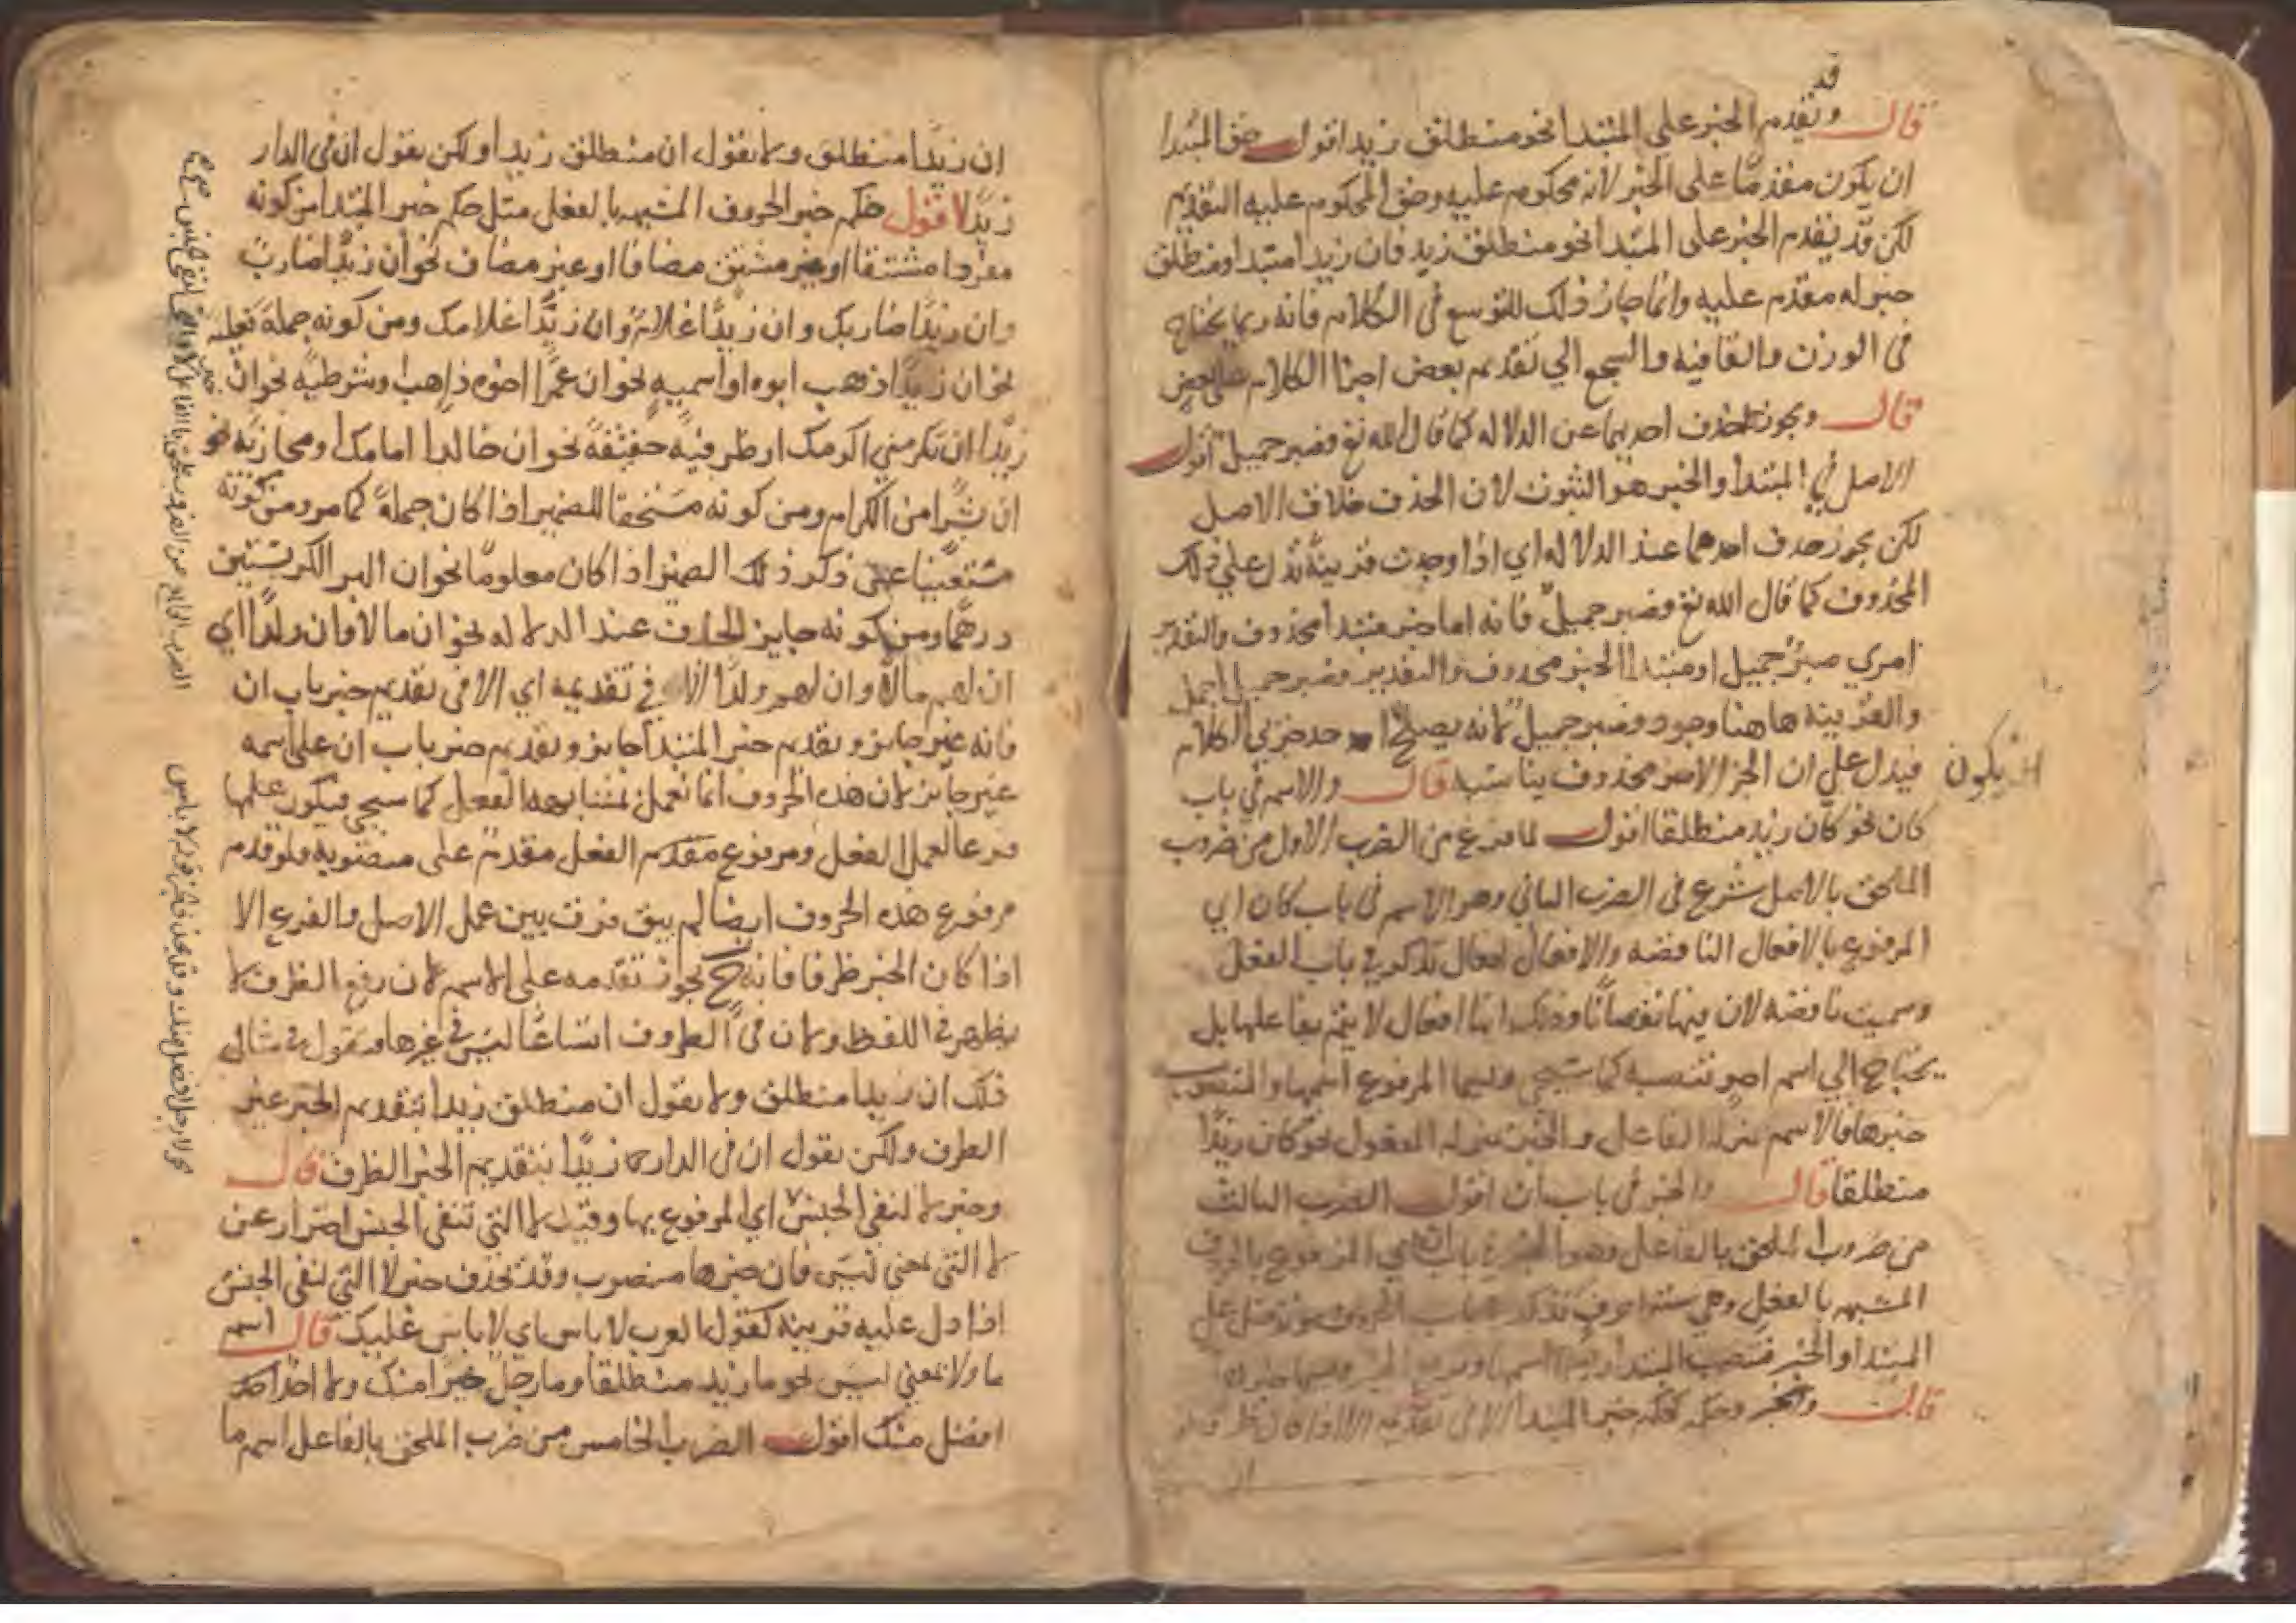 قد
قال وتقدم الخبر على المبتدا نحو منطلق زيد اقول حق المبتدا
ان يكون مقدمًا على الخبر لانه محكوم عليه وحق المحكوم عليه التقديم
لكن قد يتقدم الخبر على المبتدا نحو منطلق زيد فان زيدا مبتدا ومنطلق
خبر له مقدم عليه وانما جاز ذلك للتوسع في الكلام فانه ربما يحتاج
في الوزن والقافيه والسجع الي تقديم بعض اجزا الكلام على بعض
قال ويجوز حذف احدهما عن الدلاله كما قال الله تع فصبر جميل اقول
الاصل في المبتدأ والخبر هو الثبوت لان الحذف خلاف الاصل
لكن يجوز حذف احدهما عند الدلاله اي اذا وجدت قرينة تدل علي ذلك
المحذوف كما قال الله تع فصبر جميل فانه اما خبر مبتدأ محذوف والتقدير
امري صبر جميل او مبتدا الخبر محذوف والتقدير فصبر جميل اجمل
والقرينه هاهنا وجود فصبر جميل لانه يصلح احد جزئي الكلام
ان يكون
فيدل علي ان الجز الاخر محذوف يناسبه قال والاسم في باب
كان نحو كان زيد منطلقا اقول لما فرغ من الضرب الاول من ضروب
الملحق بالاصل شرع في الضرب الثاني وهو الاسم في باب كان اي
المرفوع بالافعال الناقصه والافعال افعال تذكر في باب الفعل
وسميت ناقصه لان فيها نقصانًا وذلك انها افعال لا يتم بفاعلها بل
يحتاج الي اسم اخر تنصبه كما سيجي وسما المرفوع اسمها والمنصوب
خبرها فالاسم بمنزلة الفاعل والخبر بمنزلة المفعول نحو كان زيدًا
منطلقا قال والخبر في باب ان اقول الضرب الثالث
من ضروب الملحق بالفاعل وهو الخبر في باب ان اي المرفوع بالحرف
المشبهه بالفعل وهي ستة احرف تذكر في باب الحروف تدخل علي
المبتدا والخبر فتنصب المبتدا
قال وحكمه كحكم خبر المبتدأ الا في تقديمه الا اذا كان ظرفا
ان زيدًا منطلق ولا نقول ان منطلق زيدا ولكن نقول ان في الدار
زيدًا اقول حكم خبر الحروف المشبهه بالفعل مثل حكم خبر المبتدا من كونه
مفردا مشتقا او غير مشتق مضافا او غير مضاف نحو ان زيدًا ضارب
وان زيدًا ضاربك وان زيدًا غلام وان زيدًا غلامك ومن كونه جملة فعليه
نحو ان زيدًا ذهب ابوه او اسميه نحو ان عمرًا اخوه ذاهب وشرطية نحو ان
زيدًا ان تكرمني اكرمك او ظرفية حقيقة نحو ان خالدا امامك او مجازية نحو
ان بشرًا من الكرام ومن كونه مستحقا للضمير اذا كان جملة كما مر ومن كونه
مستغنيا عن ذكر ذلك الضمير اذا كان معلومًا نحو ان البر الكر بستين
درهمًا ومن كونه جايز الحذف عند الدلاله نحو ان مالا وان ولدًا اي
ان لهم مالًا وان لهم ولدًا الا في تقديمه اي الا في تقديم خبر باب ان
فانه غير جايز وتقديم خبر المبتدأ جايز وتقديم خبر باب ان على اسمه
غير جايز لان هذه الحروف انما تعمل لمشابهه الفعل كما سيجي فيكون عملها
فرعا لعمل الفعل ومرفوع الفعل مقدم على منصوبه فلو قدم
مرفوع هذه الحروف ايضا لم يبق فرق بين عمل الاصل والفرع الا
اذا كان الخبر ظرفا فانه ح يجوز تقدمه على الاسم لان رفع الظرف لا
يظهر في اللفظ ولان في الظروف اتساعًا ليس في غيرها فنقول في مثال
ذلك ان زيدا منطلق ولا نقول ان منطلق زيدا بتقديم الخبر غير
الظرف ولكن نقول ان في الدار زيدًا بتقديم الخبر الظرف قال
وخبر لا لنفي الجنس اي المرفوع بها وقيد لا التي تنفي الجنس احتراز عن
لا التي بمعني ليس فان خبرها منصوب وقد تحذف خبر لا التي لنفي الجنس
اذا دل عليه قرينه كقول العرب لا باس اي لا باس عليك قال اسم
ما ولا بمعني ليس نحو ما زيد منطلقا وما رجل خيرا منك ولا احد
افضل منك اقول الضرب الخامس من ضرب الملحق بالفاعل اسم ما